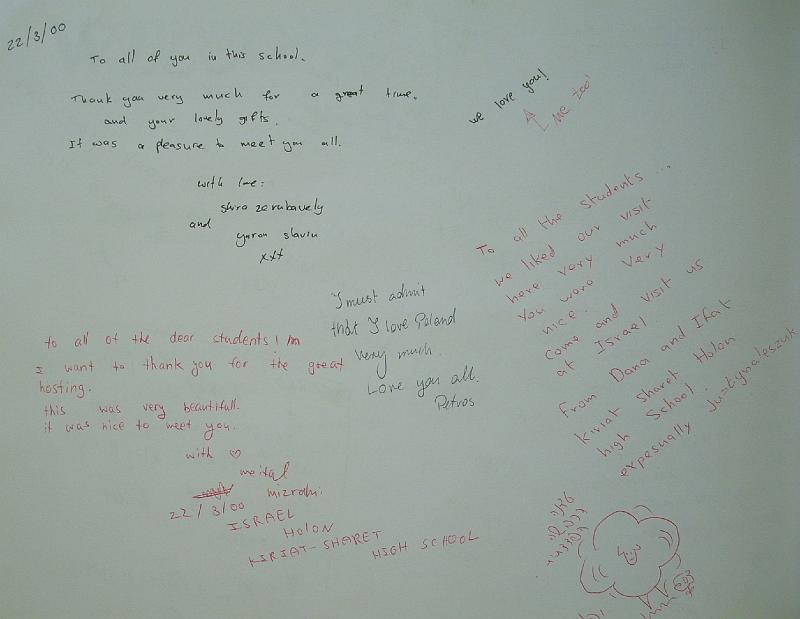 22/3/00
To all of you in this school.
Thank you very much for a great time.
and your lovely gifts.
It was a pleasure to meet you all.
with love:
shira zerubavely
and
yaron slavin
xxx
we love you!
Me too!
To all the students ...
we liked our visit
here very much
You were very
nice.
come and visit us
at Israel
From Dana and Ifat
Kiriat Sharet Holon
high School.
expesually
I must admit
that I love Poland
very much.
Love you all.
Petros
to all of the dear students!
I want to thank you for the great
hosting.
this was very beautifull.
it was nice to meet you.
with ♡
meital
mizrahi.
22/3/00
ISRAEL
HOLON
KIRIAT-SHARET
HIGH SCHOOL